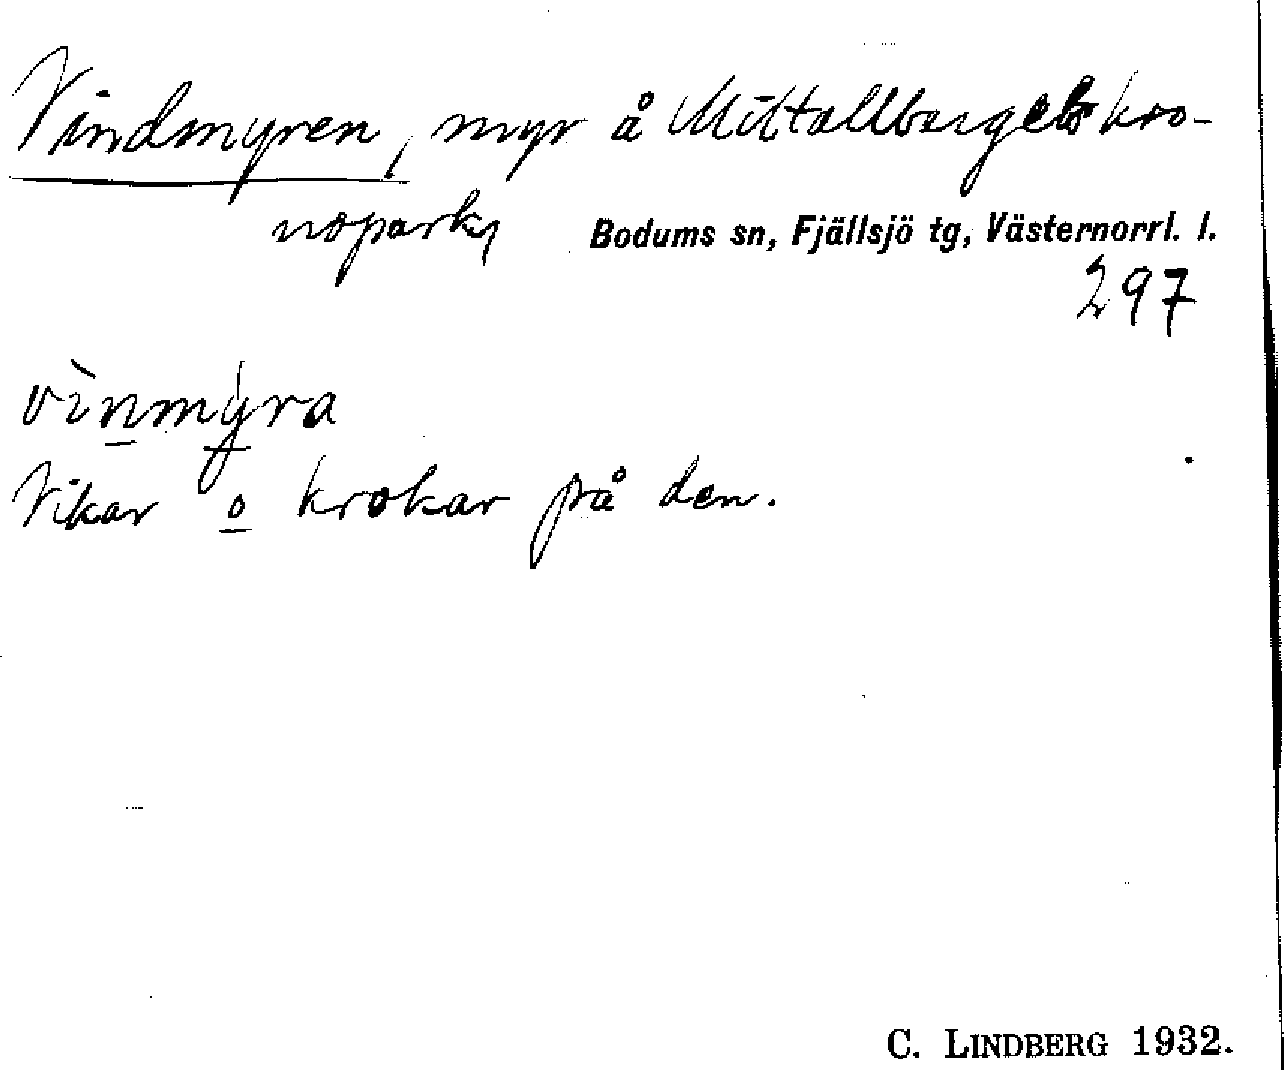 Vindmyren, myr å Mittallbergets kro-
nopark, Bodums sn, Fjällsjö tg, Västernorrl. l.
297
vìnmyra
Vikar o krokar på den.
C. LINDBERG 1932.